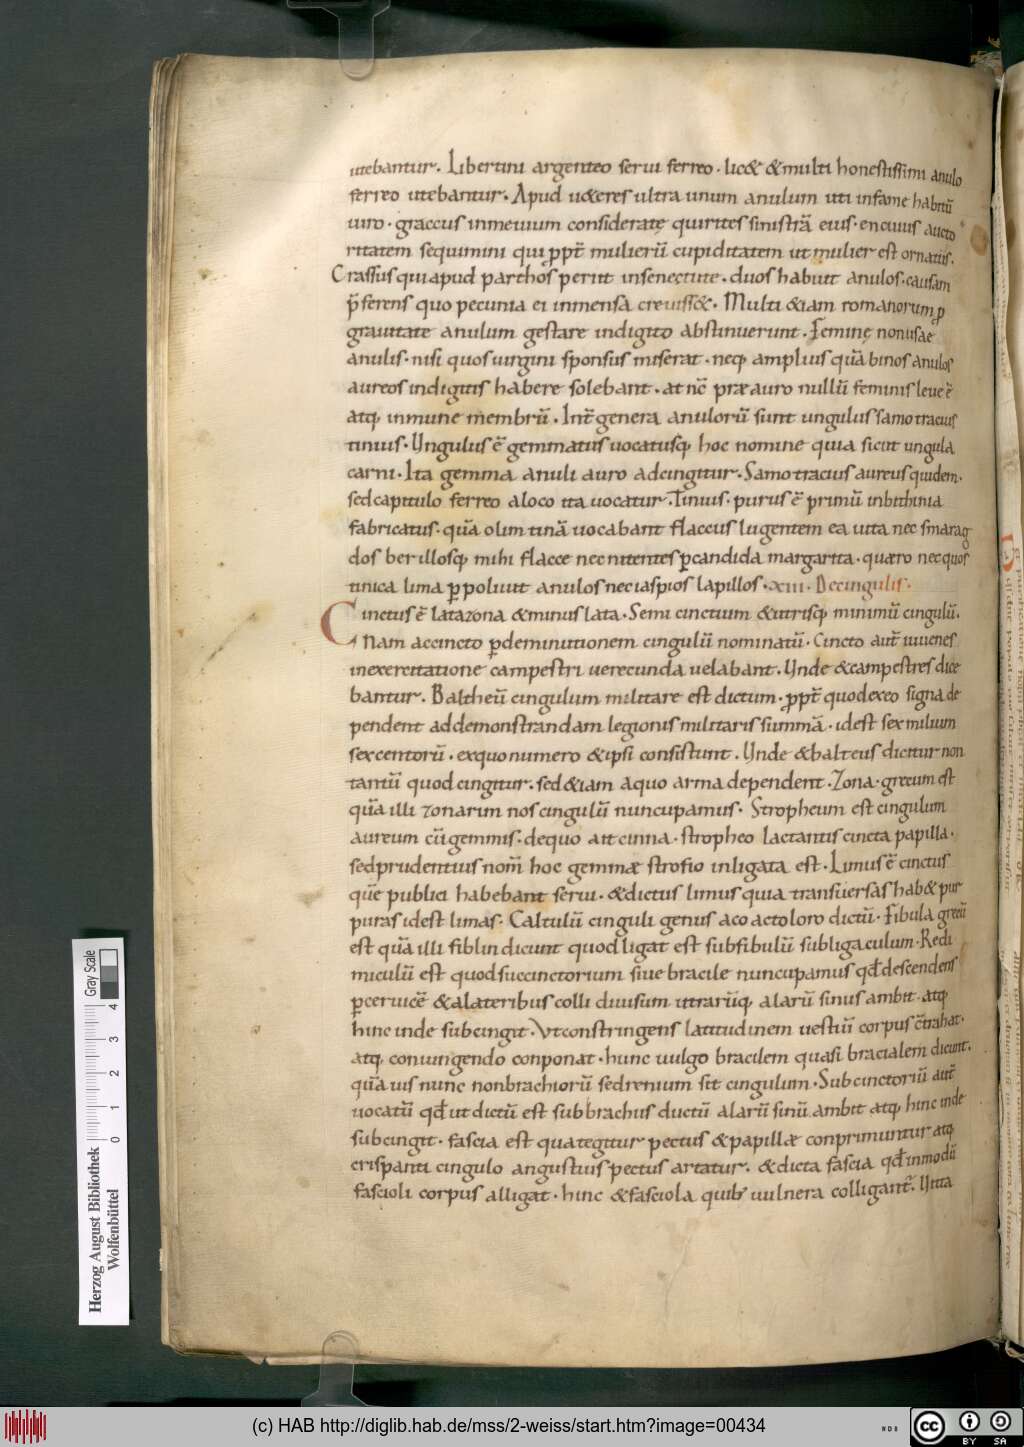 utebantur. Libertini argenteo serui ferreo. lic& &multi honestissimi anulo
ferreo utebantur. Apud u&eres ultra unum anulum uti infame habitū
uiro. graccus inmeuium considerate quirites sinistrā eius. encuius aucto
ritatem sequimini qui ꝓpt̄ mulierū cupiditatem ut mulier est ornatus.
Crassus qui apud parthos periit insenectute. duos habuit anulos. causam
p̄ferens quo pecunia ei inmensa creuiss&. Multi &iam romanorum ꝓ
grauitate anulum gestare indigito abstinuerunt. Feminę nonusae
anulis. nisi quos uirgini sponsus miserat. neq; amplius quā binos anulos
aureos indigitis habere solebant. at nc̄ præ auro nullū feminis leue ē
atq; inmune membrū. Int̄ genera anulorū sunt ungulus samotracius
tinius. Ungulus ē gemmatus uocatusq; hoc nomine quia sicut ungula
carni. Ita gemma anuli auro adcingitur. Samotracius aureus quidem.
sed capitulo ferreo aloco ita uocatur. Tinius. purus ē primū inbithinia
fabricatus. quā olim tinā uocabant flaccus lugentem ea uita nec smarag
dos berillosq; mihi flacce nec nitentes ꝑcandida margarita. quæro nec quos
tinica lima ꝑpoliuit anulos neciaspios lapillos. xiii. De cingulis.
Cinctus ē lata zona &minus lata. Semi cinctium &utrisq; minimū cingulū.
Nam accincto ꝑdeminutionem cingulū nominatū. Cincto aut̄ iuuenes
inexercitatione campestri uerecunda uelabant. Unde &campestres dice
bantur. Baltheū cingulum militare est dictum. ꝓpt̄ quodexeo signa de
pendent addemonstrandam legionis militaris summā. idest sex milium
sexcentorū. exquo numero &ipsi consistunt. Unde &balteus dicitur non
tantū quod cingitur. sed &iam aquo arma dependent. Zona. grecum est
quā illi zonarim nos cingulū nuncupamus. Stropheum est cingulum
aureum cū gemmis. dequo ait cinna. stropheo lactantis cincta papilla.
sed prudentius nom̄ hoc gemmæ strofio inligata est. Limus ē cinctus
quē publici habebant serui. &dictus limus quia transuersas hab& pur
puras idest limas. Caltulū cinguli genus aco actoloro dictū. Fibula grecū
est quā illi fiblin dicunt quod ligat est subfibulū subligaculum. Redi
miculū est quod succinctorium siue bracile nuncupamus qđ descendens
ꝑceruicē &alateribus colli diuisum utrarūq; alarū sinus ambit. atq;
hinc inde subcingit. Ut constringens latitudinem uestiū corpus c̄trahat.
atq; coniungendo conponat. hunc uulgo bracilem quasi bracialem dicunt.
quā uis nunc nonbrachiorū sedrenium sit cingulum. Subcinctoriū aut̄
uocatū qđ ut dictū est sub brachiis ductū alarū sinū ambit atq; hinc inde
subcingit. fascia est quategitur pectus &papillæ conprimuntur atq;
crispanti cingulo angustius pectus artatur. &dicta fascia qđ inmodū
fascioli corpus alligat. hinc &fasciola quib; uulnera colligant̄. Uitta
Herzog August Bibliothek
Wolfenbüttel
0 1 2 3 4
Gray Scale
(c) HAB http://diglib.hab.de/mss/2-weiss/start.htm?image=00434
WDB
cc BY SA